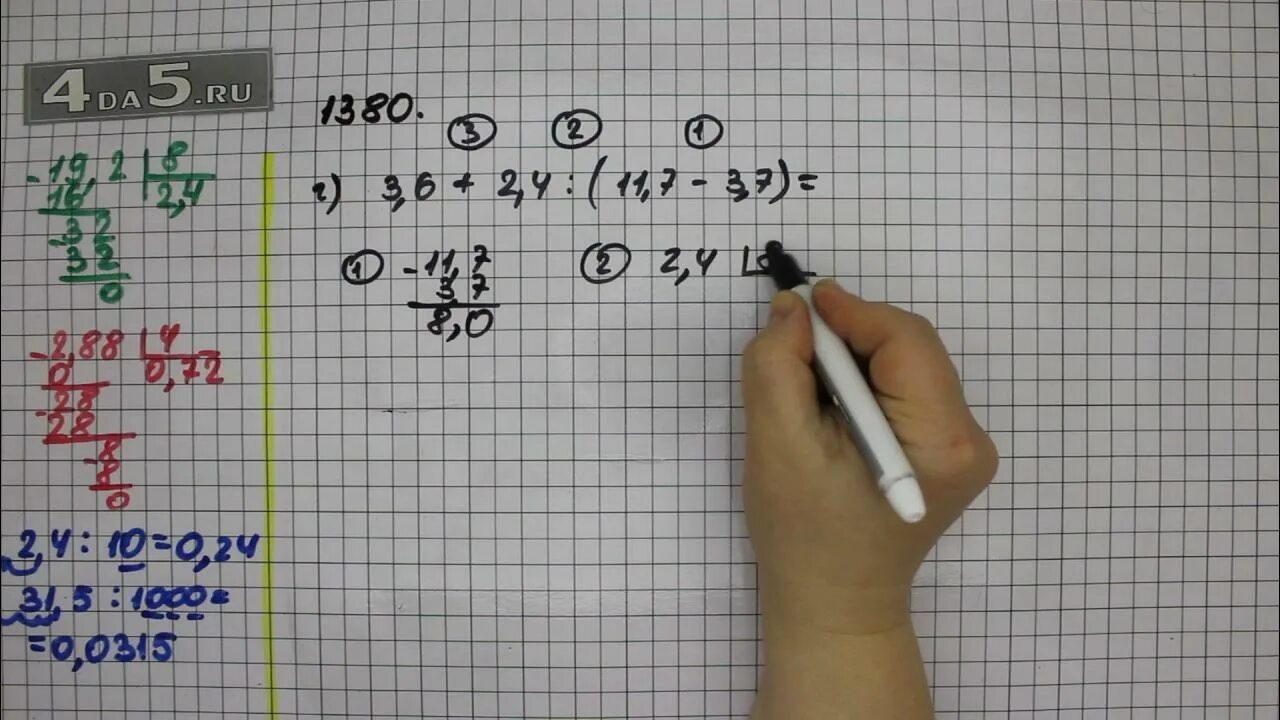 4DA5.RU
1380.
③ ② ①
г) 3,6 + 2,4 : (11,7 - 3,7) =
① - 11,7
3,7
8,0
② 2,4
- 19,2 | 8
16 2,4
- 32
32
0
- 2,88 | 4
0 0,72
- 28
28
- 8
8
0
2,4 : 10 = 0,24
31,5 : 1000 =
= 0,0315